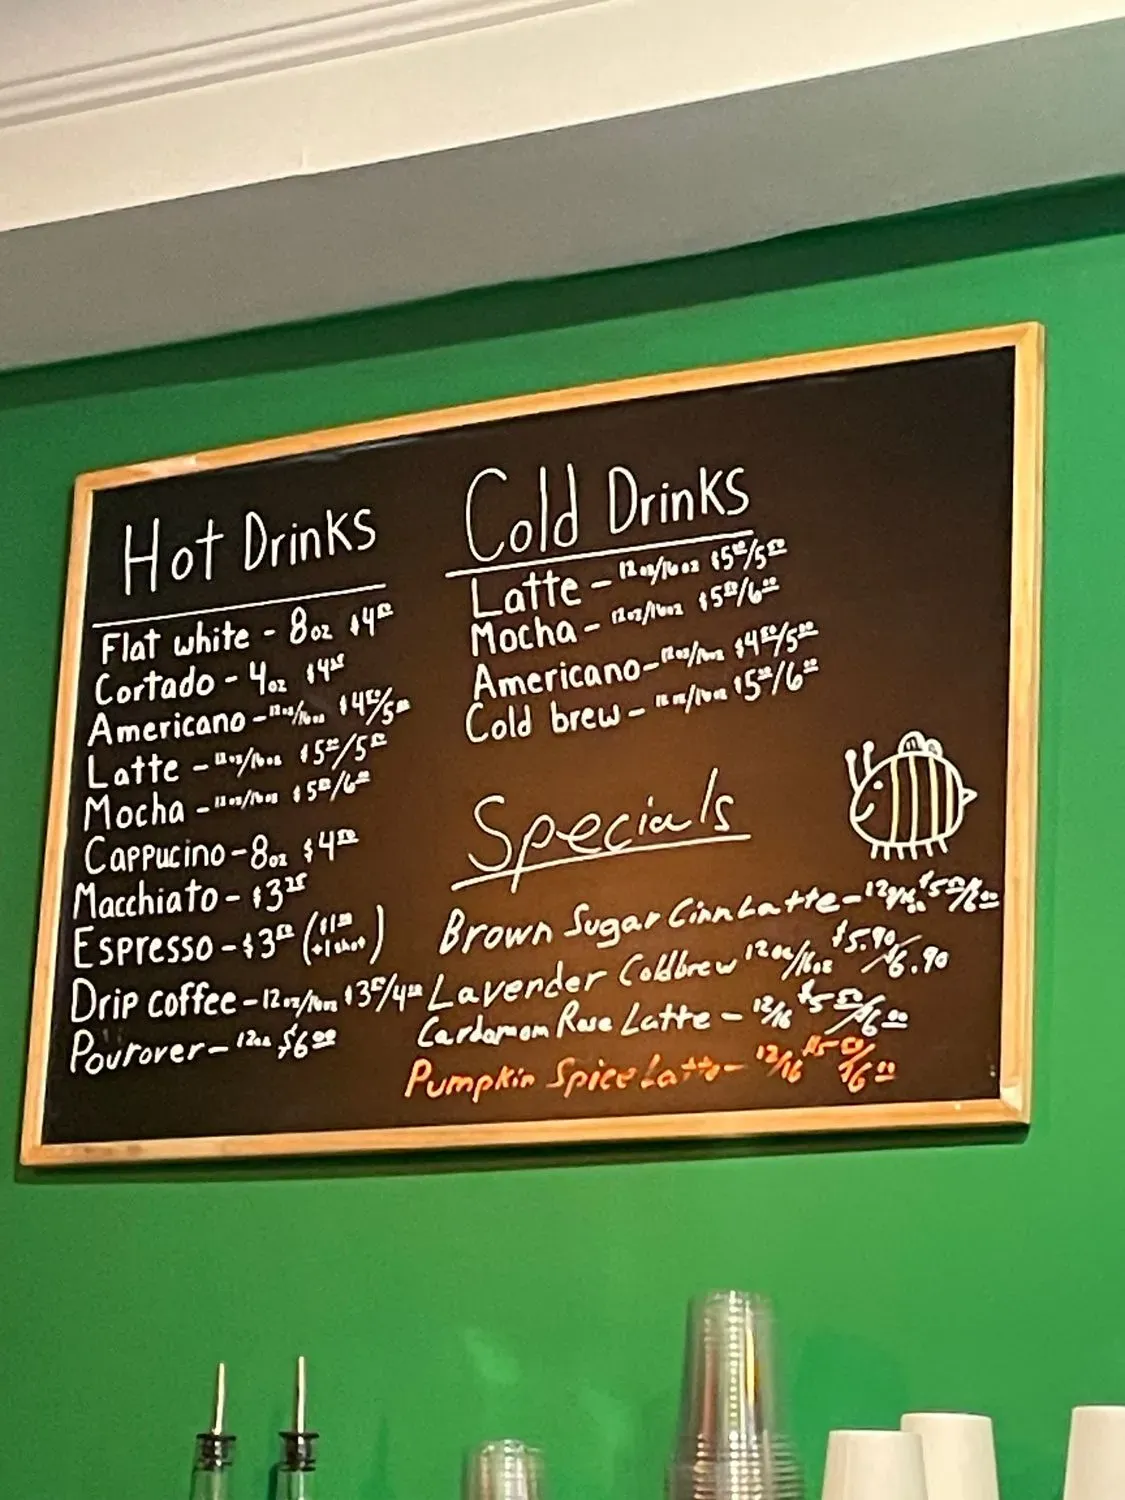 Hot Drinks
Flat white - 8oz $4.50
Cortado - 4oz $4.25
Americano - 12oz/16oz $4.50/5.00
Latte - 12oz/16oz $5.00/5.50
Mocha - 12oz/16oz $5.50/6.00
Cappucino - 8oz $4.50
Macchiato - $3.25
Espresso - $3.00 ($1.00 +1 shot)
Drip coffee - 12oz/16oz $3.50/4.00
Pourover - 12oz $6.00
Cold Drinks
Latte - 12oz/16oz $5.00/5.50
Mocha - 12oz/16oz $5.50/6.00
Americano - 12oz/16oz $4.50/5.00
Cold brew - 12oz/16oz $5.00/6.00
Specials
Brown Sugar Cinn Latte - 12oz/16oz $5.50/6.00
Lavender Coldbrew 12oz/16oz $5.90/6.90
Cardamom Rose Latte - 12/16 $5.50/$6.00
Pumpkin Spice Latte - 12/16 $5.50/$6.00